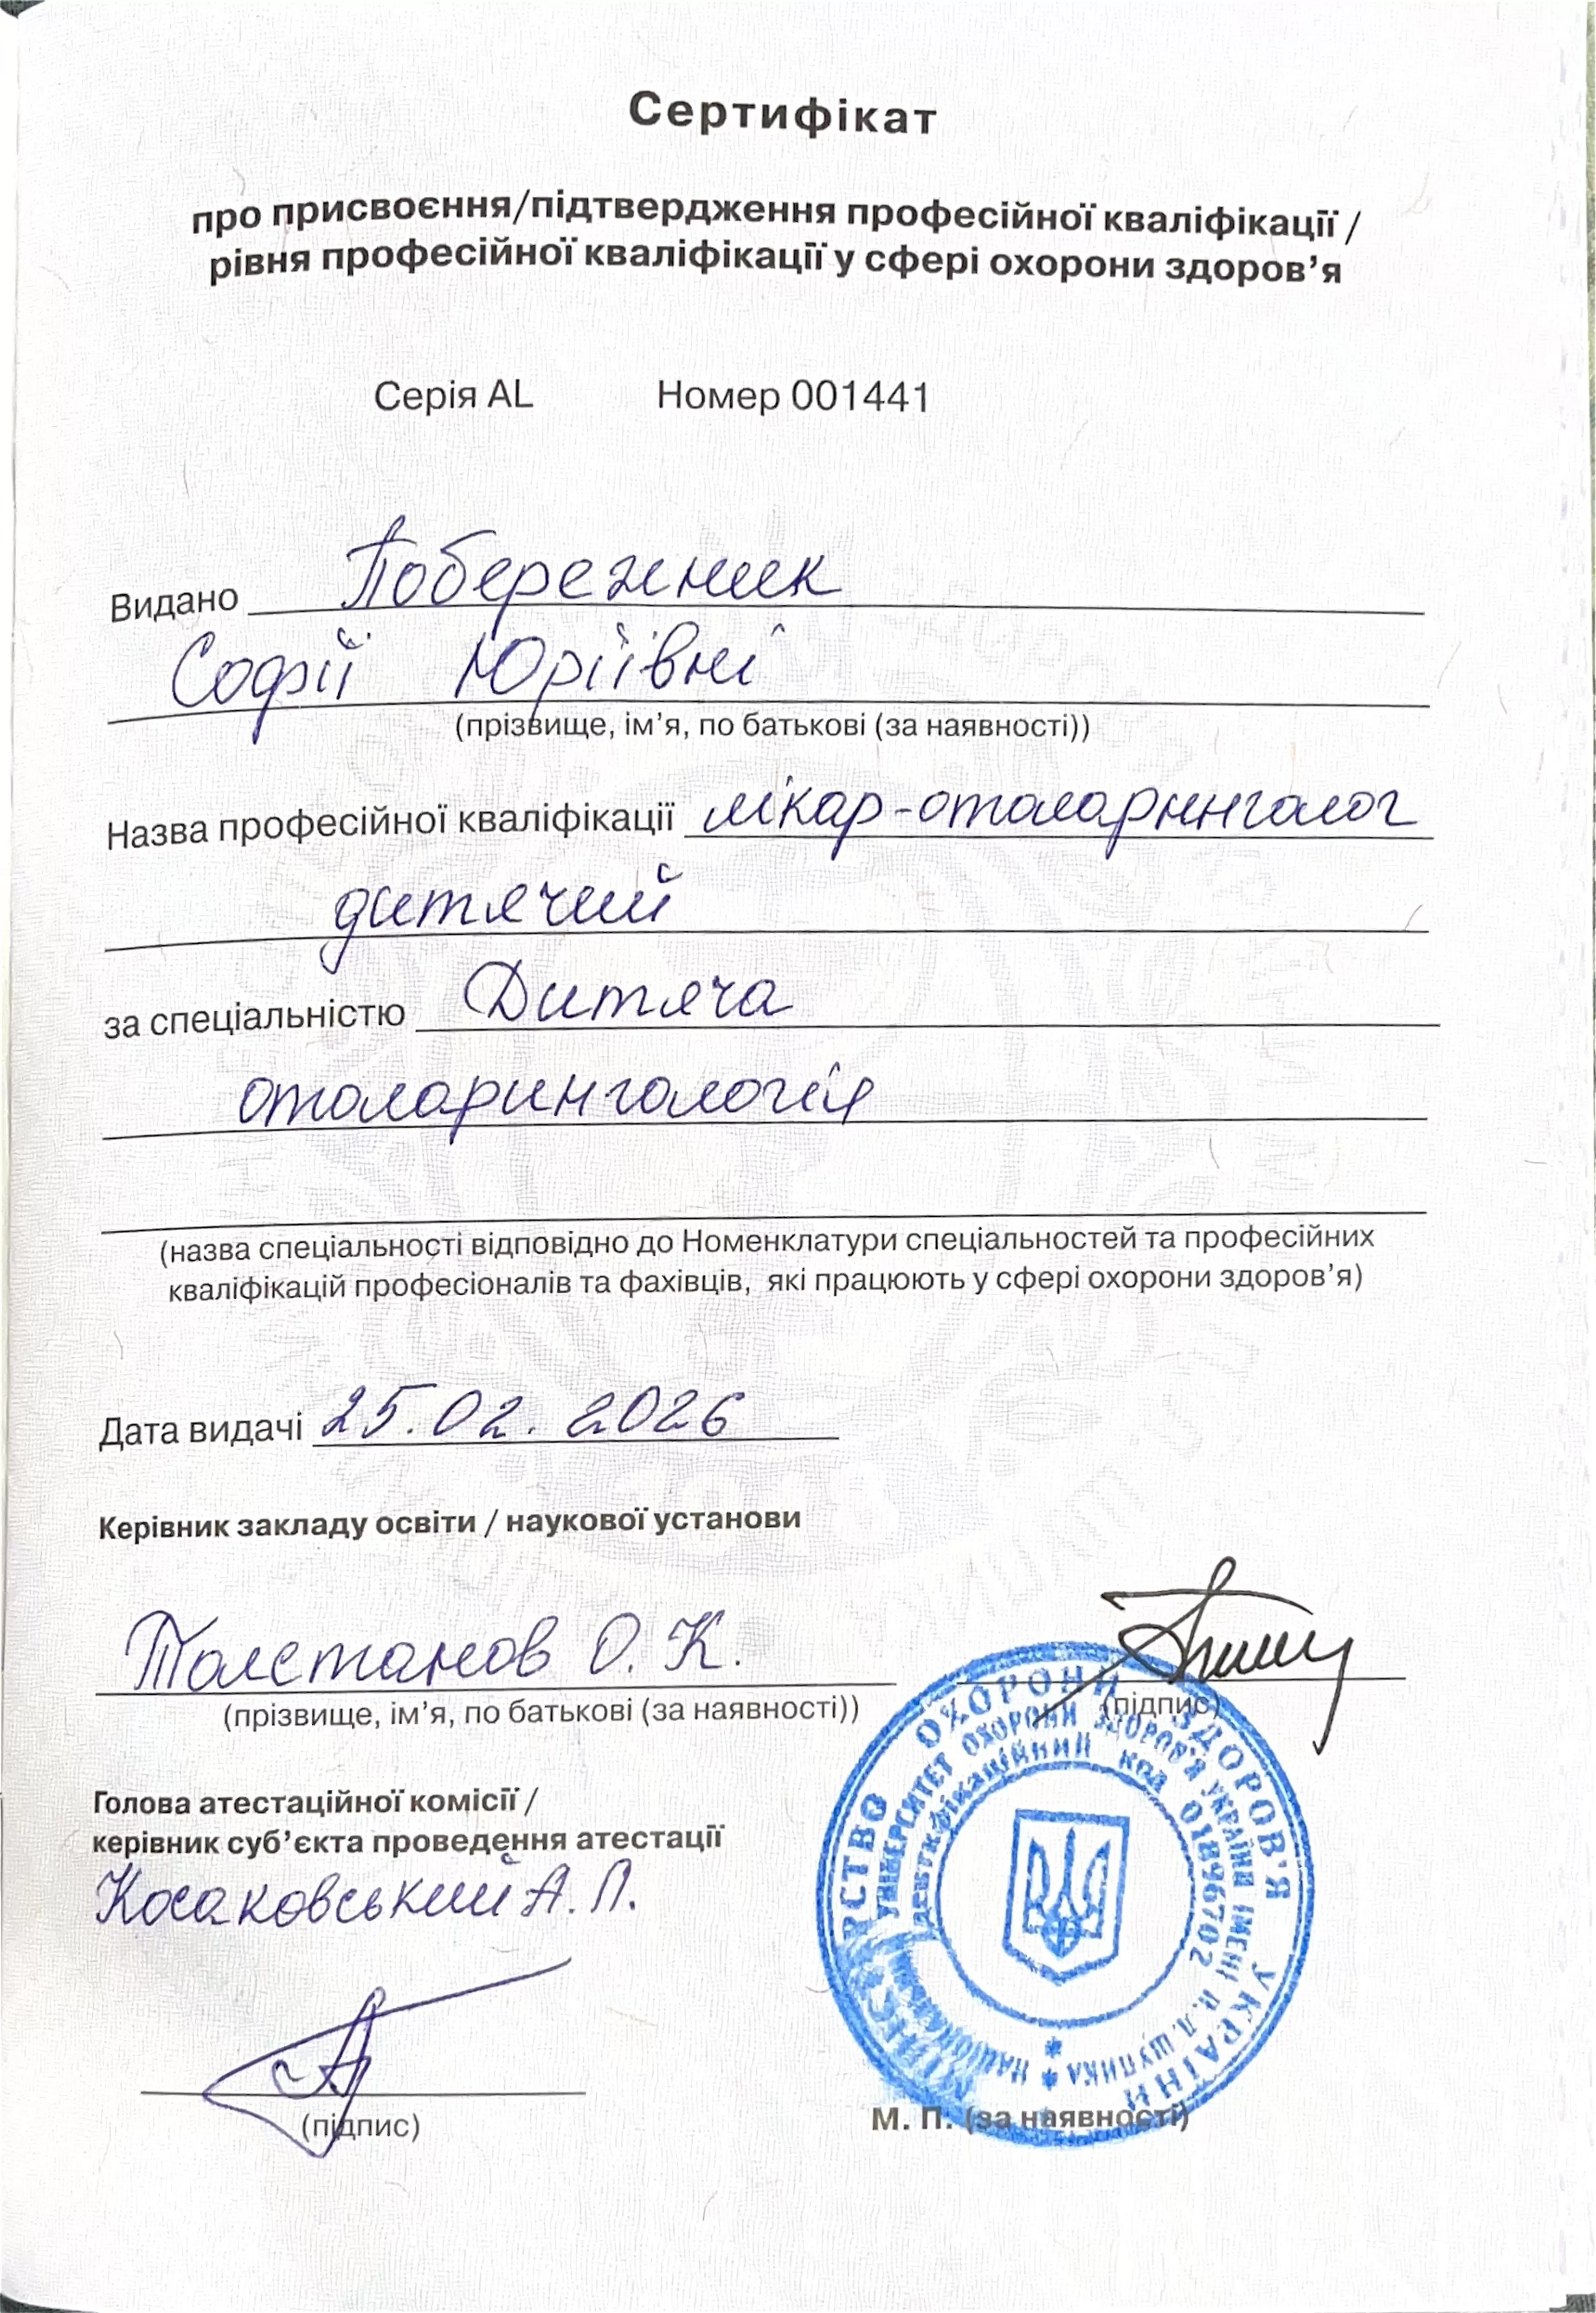 Сертифікат
про присвоєння/підтвердження професійної кваліфікації /
рівня професійної кваліфікації у сфері охорони здоров’я
Серія AL Номер 001441
Видано Побережник
Софії Юріївні
(прізвище, ім’я, по батькові (за наявності))
Назва професійної кваліфікації лікар-отоларинголог
дитячий
за спеціальністю Дитяча
отоларингологія
(назва спеціальності відповідно до Номенклатури спеціальностей та професійних
кваліфікацій професіоналів та фахівців, які працюють у сфері охорони здоров’я)
Дата видачі 25.02.2026
Керівник закладу освіти / наукової установи
Толстанов О. К.
(прізвище, ім’я, по батькові (за наявності))
(підпис)
Голова атестаційної комісії /
керівник суб’єкта проведення атестації
Косаковський А. Л.
(підпис)
М. П. (за наявності)
ОХОРОНИ ЗДОРОВ'Я УКРАЇНИ
УНІВЕРСИТЕТ ОХОРОНИ ЗДОРОВ'Я УКРАЇНИ ІМЕНІ П.Л. ШУПИКА
код 01896702